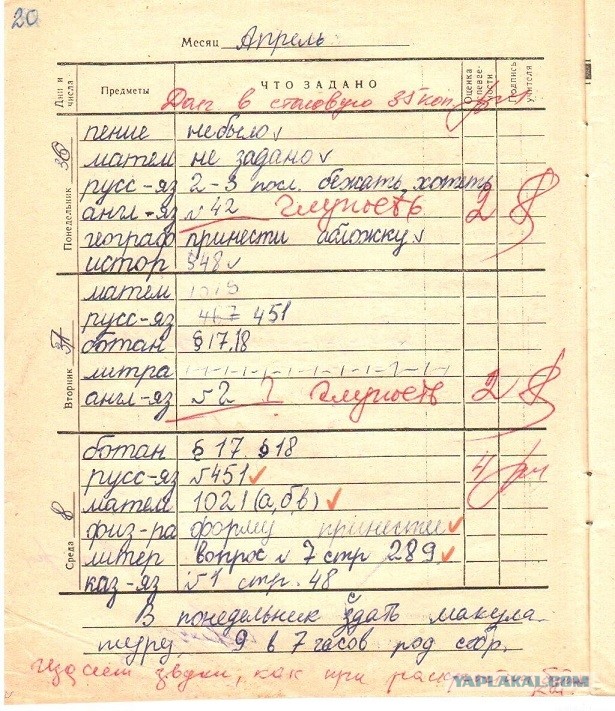 20
Месяц Апрель
Дни и числа Предметы ЧТО ЗАДАНО Оценка успевае- мости Подпись учителя
Долг в столовую 35 коп.
Понедельник 6
пение небыло ✓
матем не задано ✓
русс-яз 2-3 посл. бежать, хотеть
англ-яз №42 Глупость 2
географ принести обложку ✓
истор §48 ✓
Вторник 7
матем 1019
русс-яз 467 451
ботан § 17,18
литра
англ-яз №2 ? Глупость 2
Среда 8
ботан § 17 § 18
русс-яз №451 ✓ 4
матем 1021 (а,б,в) ✓
физ-ра форму принести ✓
литер вопрос № 7 стр 289 ✓
каз-яз №1 стр. 48
В понедельник сдать макула
туру 9 в 7 часов род собр.
Издаёт звуки, как при
YAPLAKAL.COM